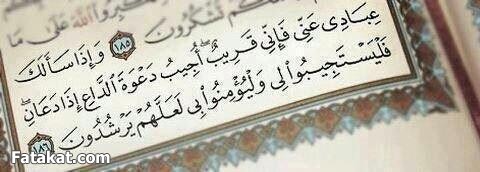 تَشْكُرُونَ ١٨٥ وَإِذَا سَأَلَكَ
عِبَادِى عَنِّى فَإِنِّى قَرِيبٌ أُجِيبُ دَعْوَةَ ٱلدَّاعِ إِذَا دَعَانِ
فَلْيَسْتَجِيبُوا۟ لِى وَلْيُؤْمِنُوا۟ بِى لَعَلَّهُمْ يَرْشُدُونَ ١٨٦
Fatakat.com